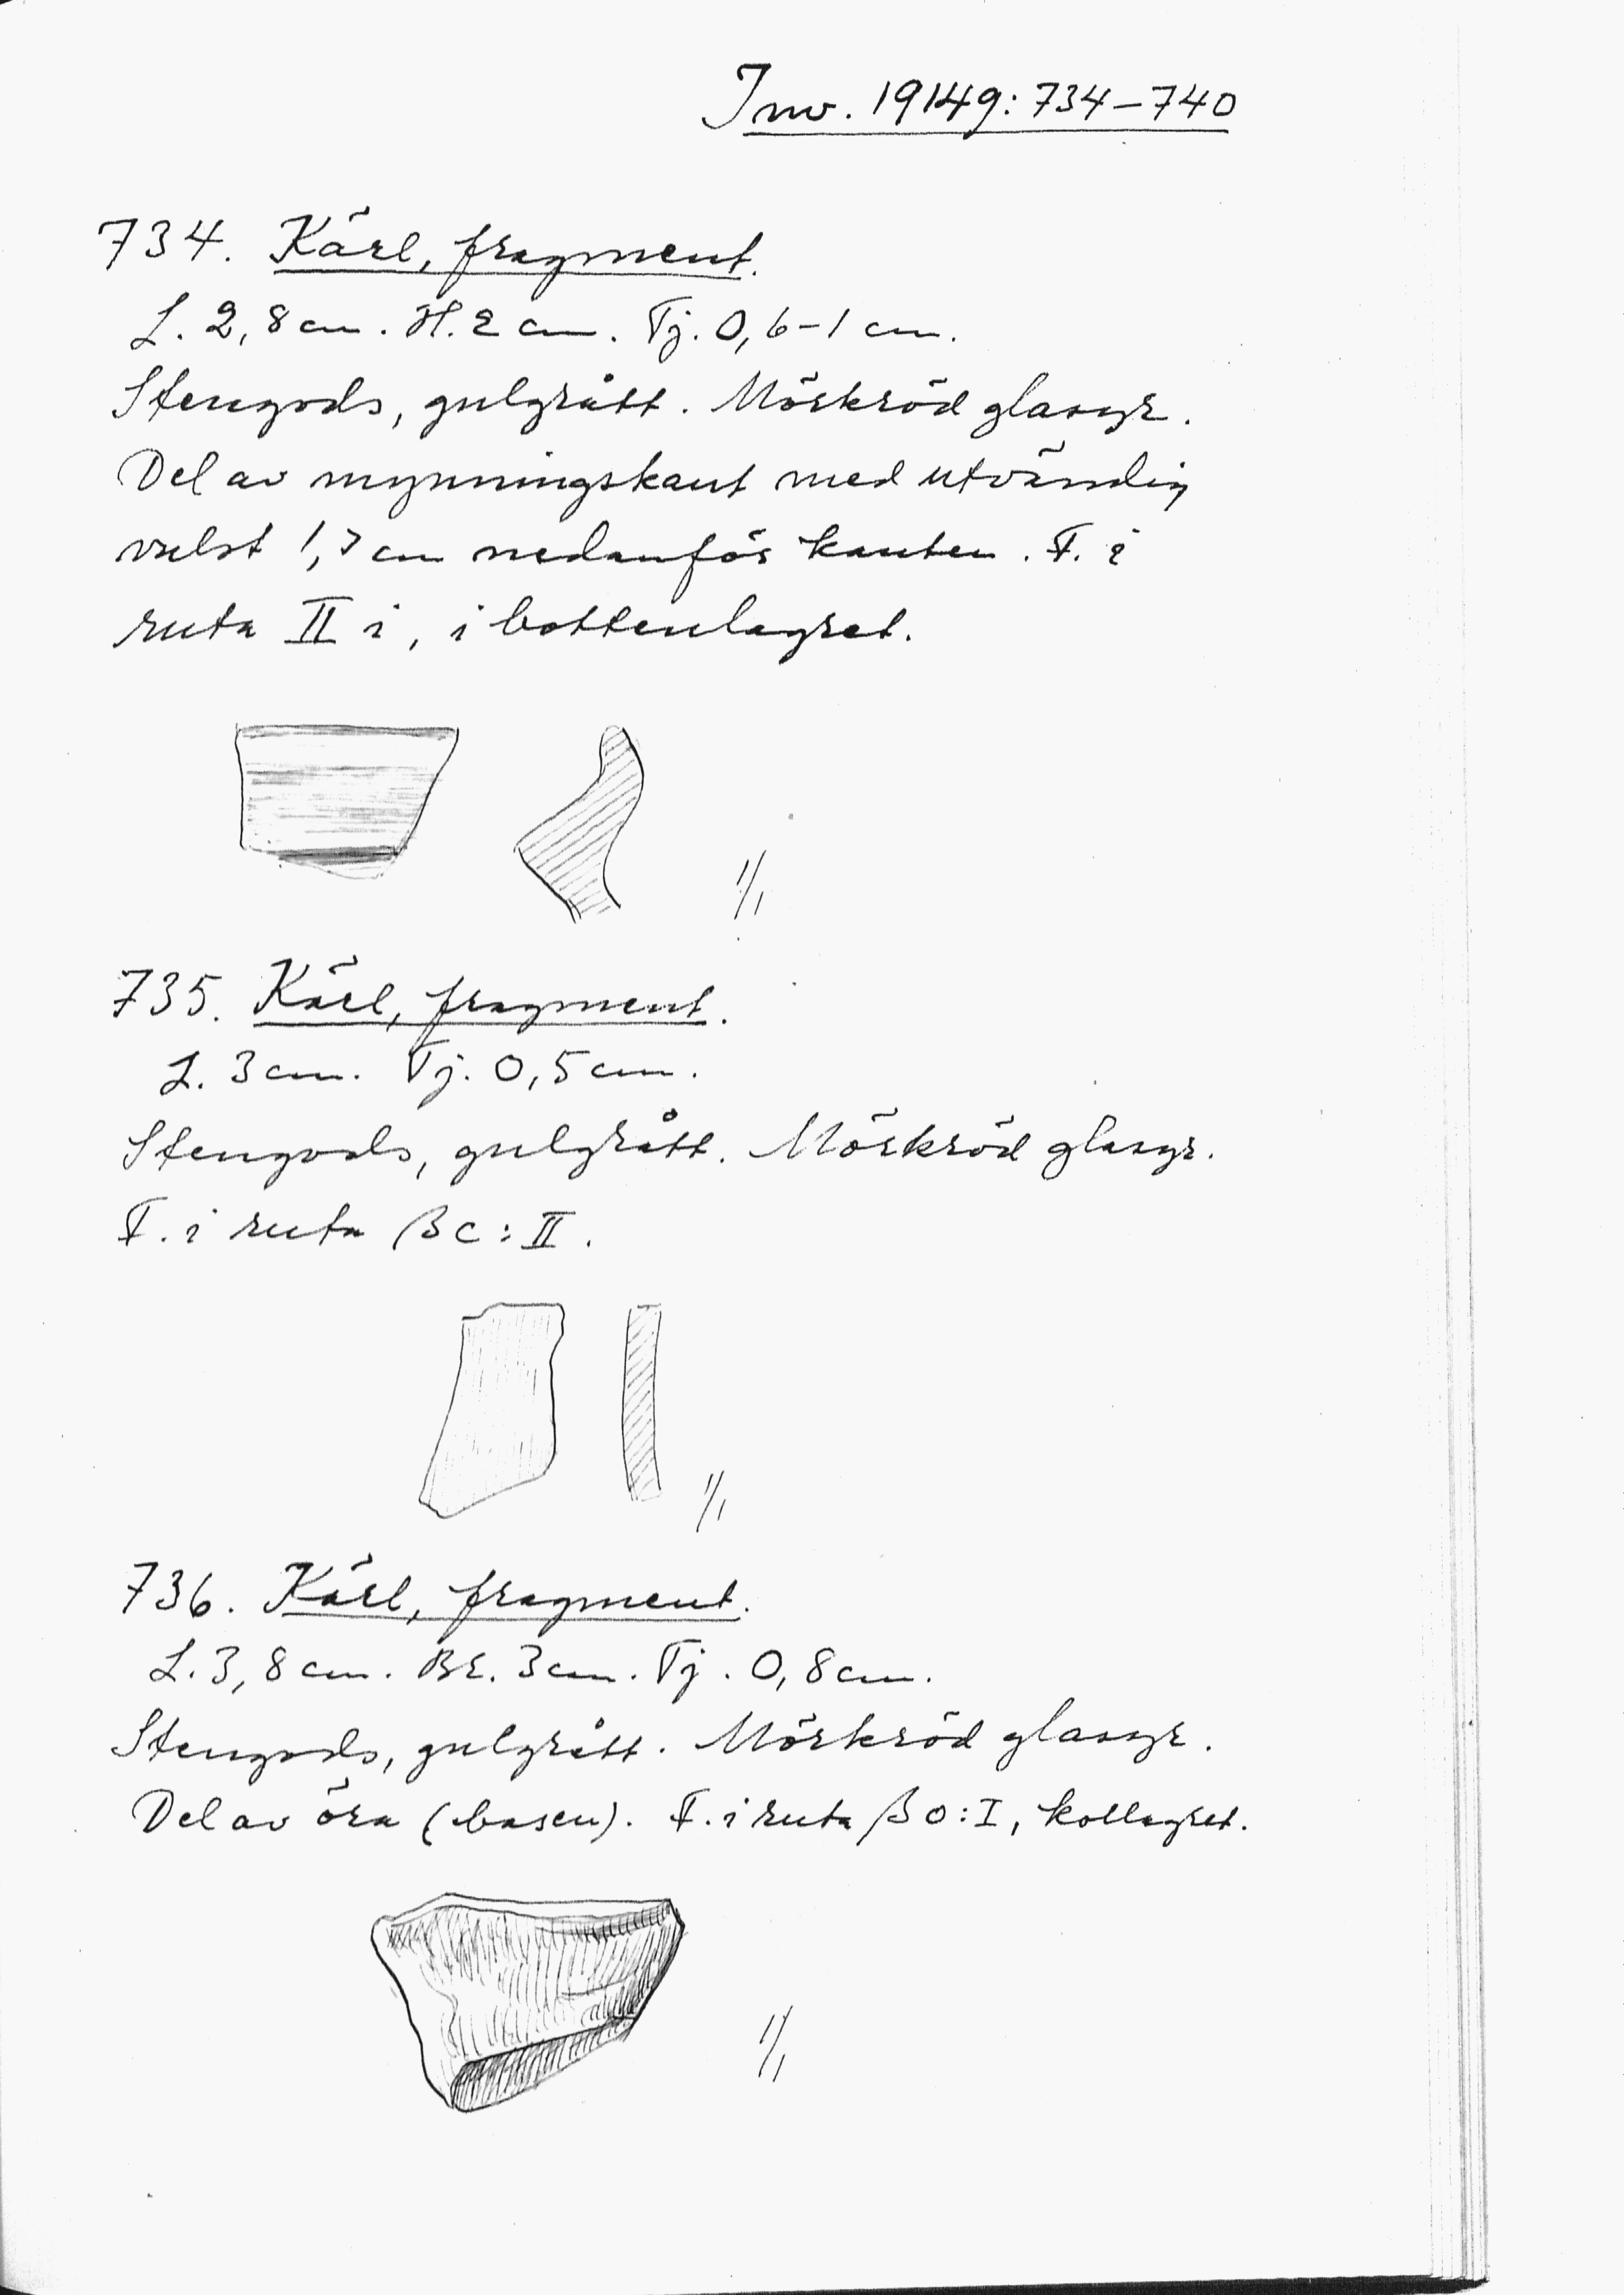 Inv. 19149: 734–740
734. Kärl, fragment.
L. 2,8 cm. H. 2 cm. Tj. 0,6–1 cm.
Stengods, gulgrått. Mörkröd glasyr.
Del av mynningskant med utvändig
vulst 1,7 cm nedanför kanten. F. i
ruta II i, i bottenlagret.
1/1
735. Kärl, fragment.
L. 3 cm. Tj. 0,5 cm.
Stengods, gulgrått. Mörkröd glasyr.
F. i ruta βc: II.
1/1
736. Kärl, fragment.
L. 3,8 cm. Br. 3 cm. Tj. 0,8 cm.
Stengods, gulgrått. Mörkröd glasyr.
Del av öra (basen). F. i ruta β0: I, kollagret.
1/1